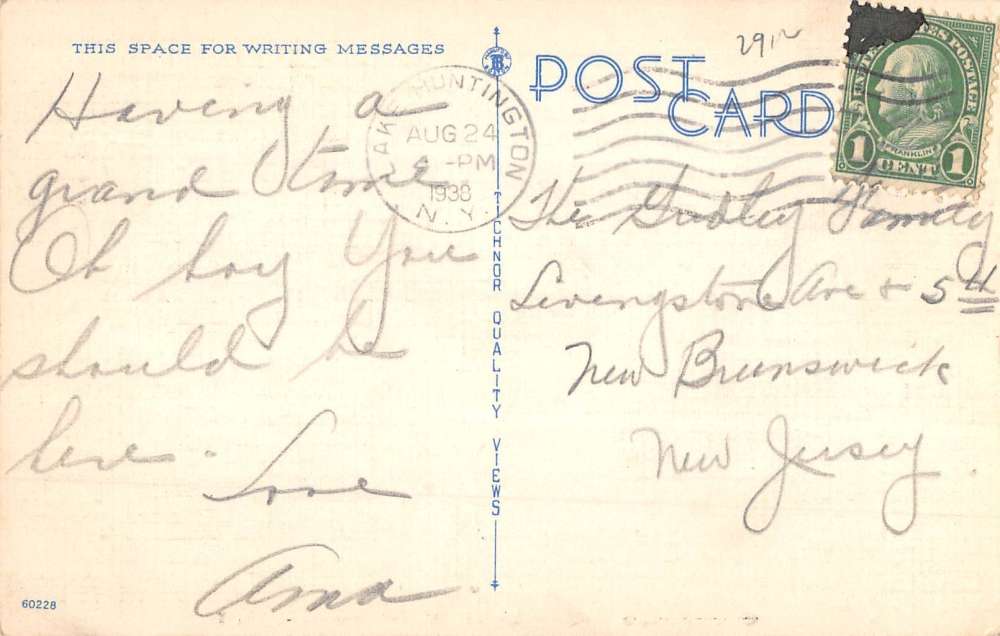 THIS SPACE FOR WRITING MESSAGES
Having a
grand time
Oh boy You
should be
here.
Love
Anna
60228
LAKE HUNTINGTON
AUG 24
4 - PM
1938
N.Y.
TICHNOR QUALITY VIEWS
POST
CARD
UNITED STATES POSTAGE
FRANKLIN
1 CENT 1
The Family
Livingston Ave & 5th
New Brunswick
New Jersey.